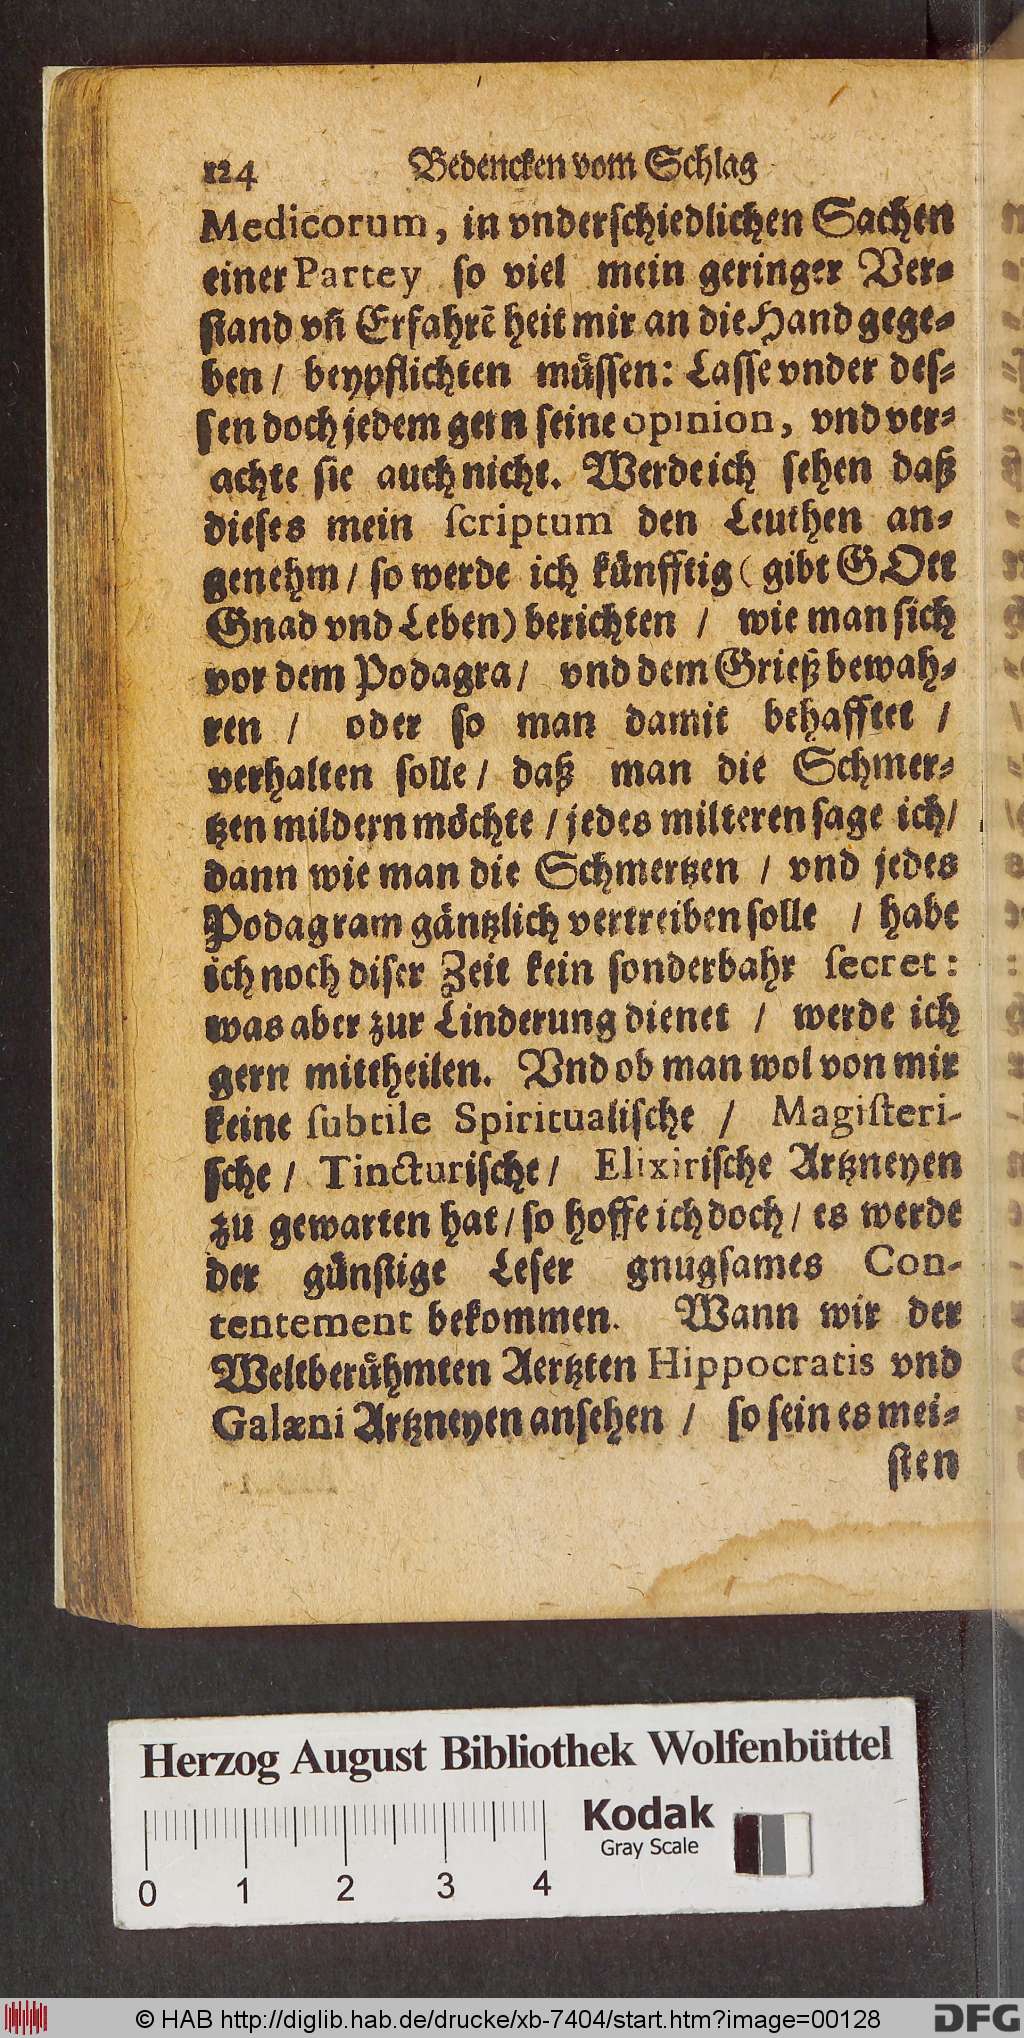 124 Bedencken vom Schlag
Medicorum, in vnderschiedlichen Sachen
einer Partey so viel mein geringer Ver-
stand vñ Erfahrẽ heit mir an die Hand gege-
ben / beypflichten müssen: Lasse vnder des-
sen doch jedem gern seine opinion, vnd ver-
achte sie auch nicht. Werde ich sehen daß
dieses mein scriptum den Leuthen an-
genehm / so werde ich künfftig (gibt GOtt
Gnad vnd Leben) berichten / wie man sich
vor dem Podagra / vnd dem Grieß bewah-
ren / oder so man damit behafftet /
verhalten solle / daß man die Schmer-
tzen mildern möchte / jedes milteren sage ich /
dann wie man die Schmertzen / vnd jedes
Podagram gäntzlich vertreiben solle / habe
ich noch diser Zeit kein sonderbahr secret:
was aber zur Linderung dienet / werde ich
gern mittheilen. Vnd ob man wol von mir
keine subtile Spiritualische / Magisteri-
sche / Tincturische / Elixirische Artzneyen
zu gewarten hat / so hoffe ich doch / es werde
der günstige Leser gnugsames Con-
tentement bekommen. Wann wir der
Weltberühmten Aertzten Hippocratis vnd
Galæni Artzneyen ansehen / so sein es mei-
sten
Herzog August Bibliothek Wolfenbüttel
Kodak
Gray Scale
0 1 2 3 4
© HAB http://diglib.hab.de/drucke/xb-7404/start.htm?image=00128
DFG